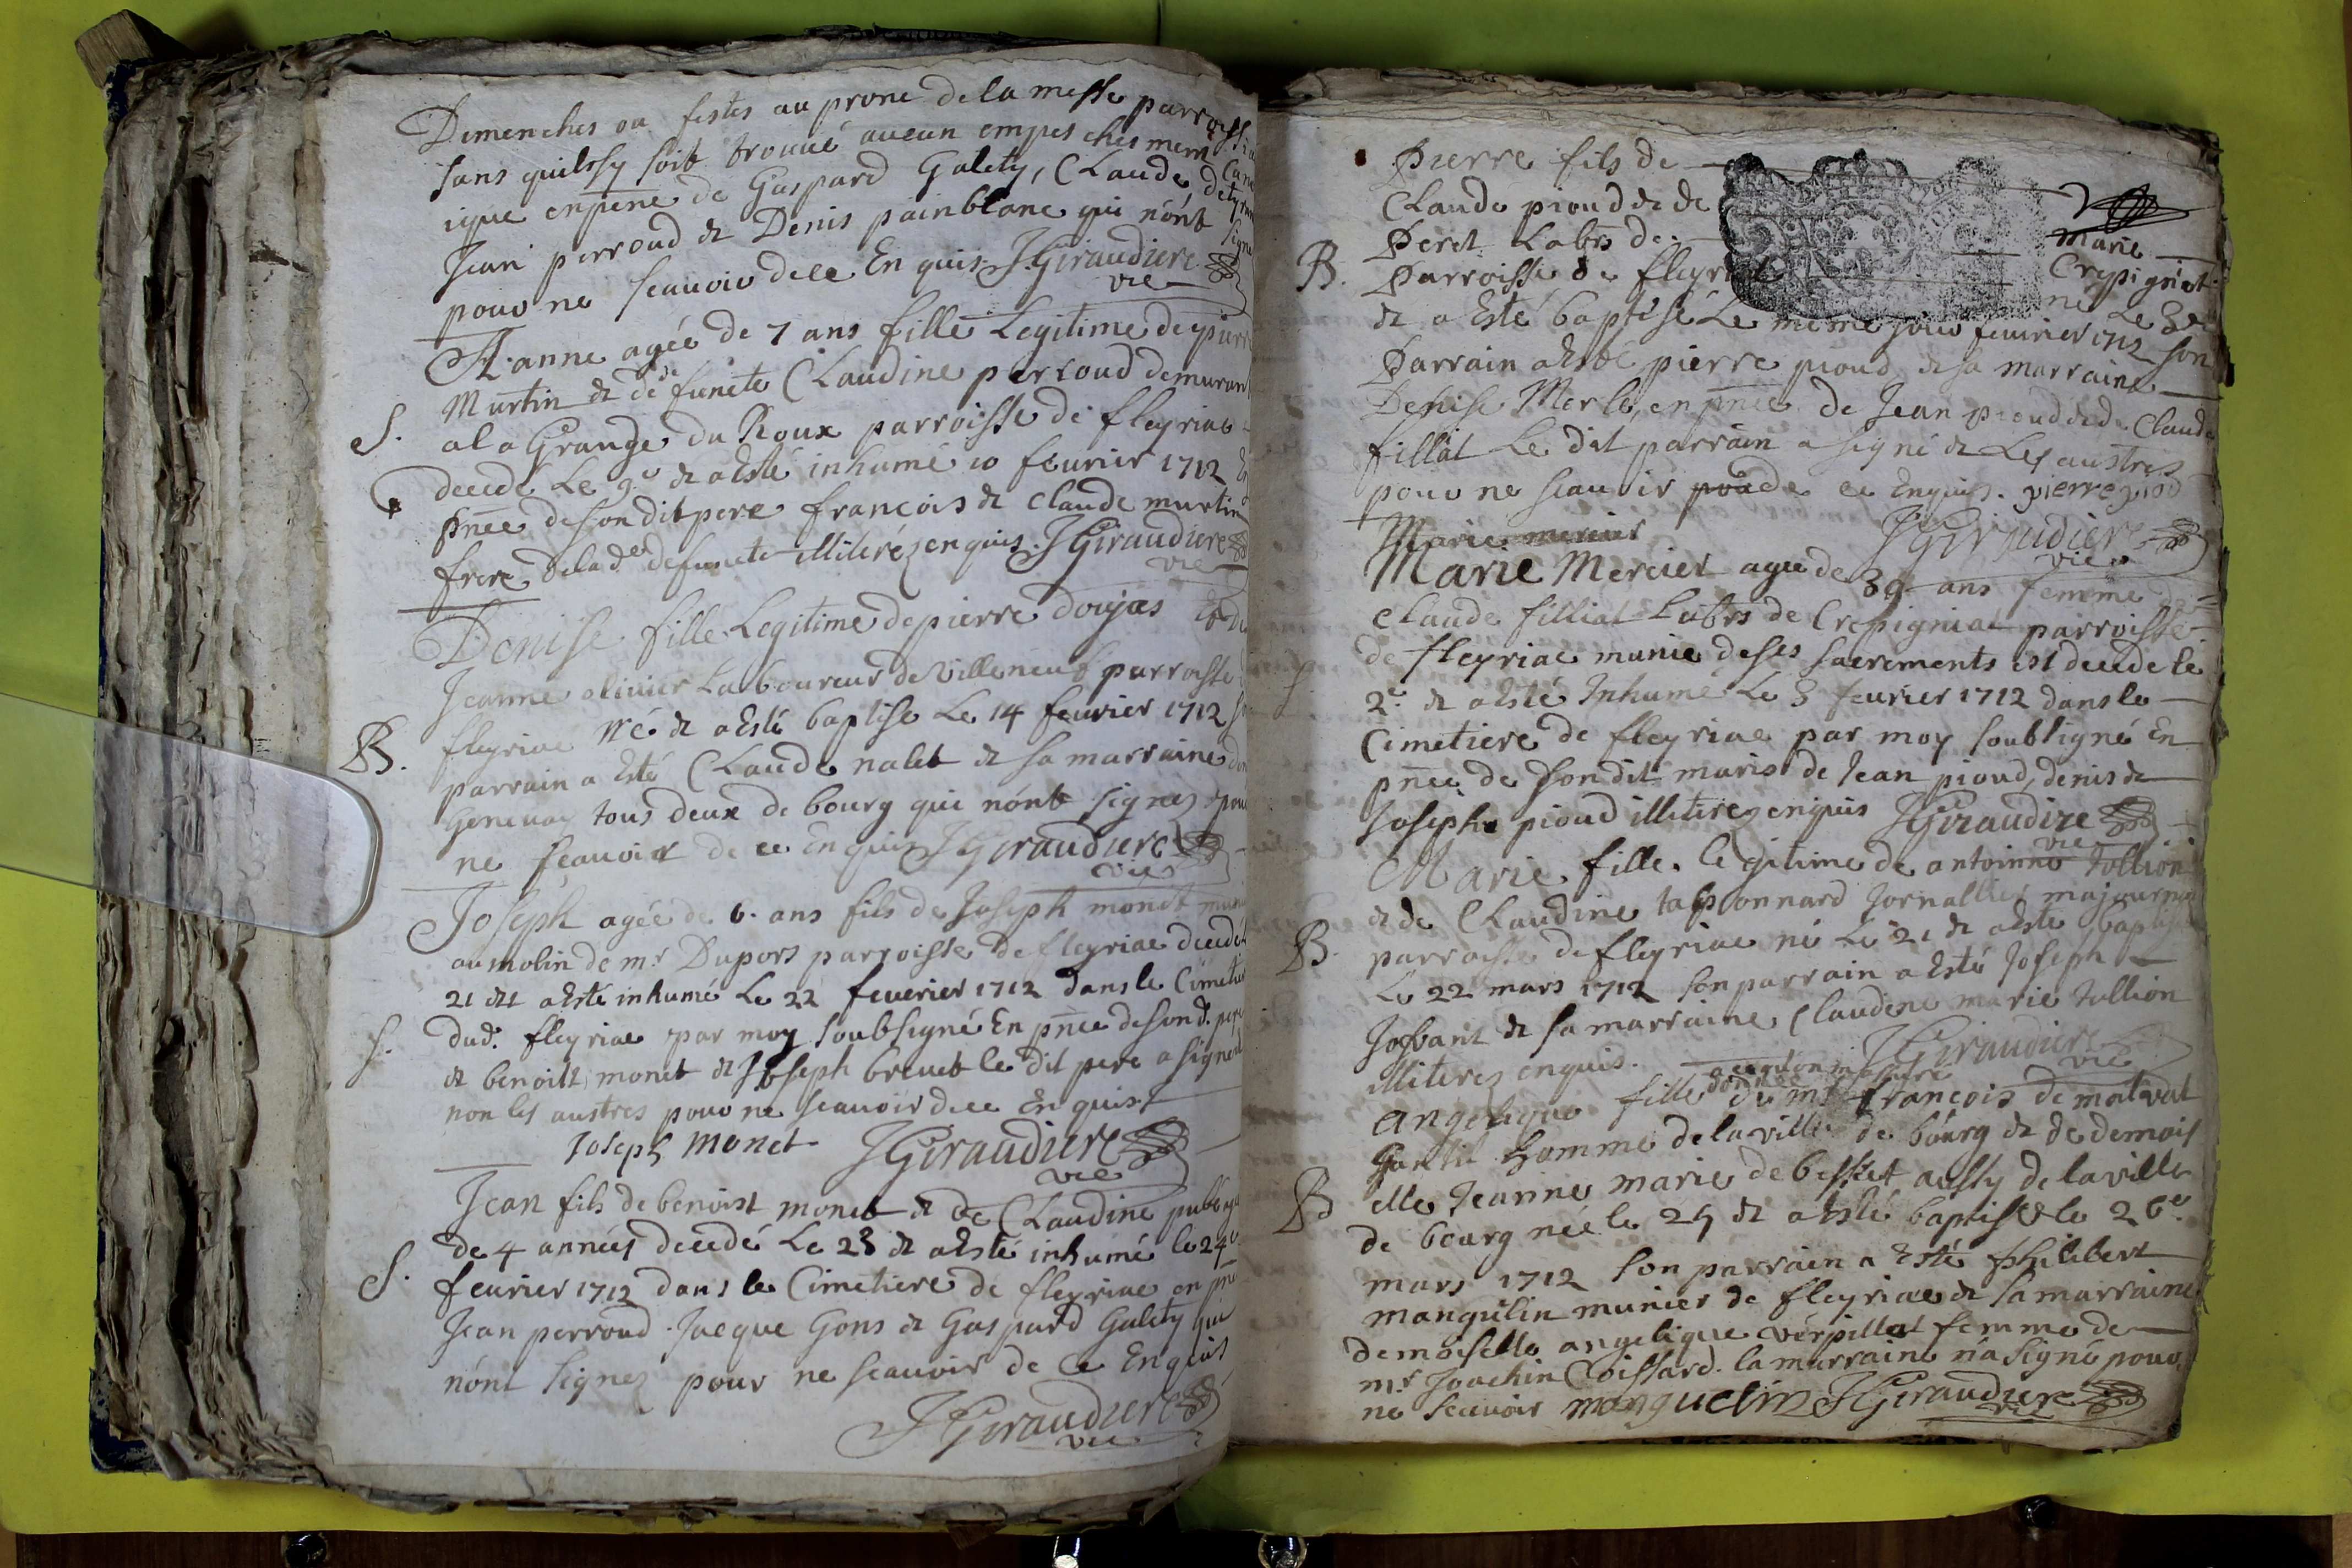 Dimenches ou festes au prone de la messe parroissi
sans quilssy soit trouué aucun empeschement
ique en pnce de Gaspard Galety, Claude
Jean perroud & Denis painblanc qui nont signe
pour ne scauoir de ce Enquis. J Giraudiere
vic
Anne agée de 7 ans fille Legitime de pierre
Murtin & de defuncte Claudine perroud demurant
S. a la Grange du Roux parroisse de fleyriac
decedé Le 9e & a esté inhumé 10 feurier 1712
pnce de son dit pere francois & Claude murtin
frere de lad defuncte illiterez enquis. J Giraudiere
vic
Denise fille Legitime de pierre doujas & de
Jeanne oliuier Laboureur de Villeneuf parroisse
B. fleyriac né & a esté baptisé Le 14 feurier 1712
parrain a Esté Claude nalet & sa marraine
Geneuay tous deux de bourg qui nónt signez pour
ne scauoir de ce enquis J Giraudiere
vic
Joseph agée de 6. ans fils de Joseph monét
au molin de mr Dupors parroisse de fleyriac decedé
21 & a esté inhumé Le 22 feuerier 1712 dans le Cimetie
S. dud. fleyriac par moy soubsigné En pnce de son d. pere
& benoist monet & Joseph breuet le dit pere a signé
non les austres pour ne scauoir de ce Enquis
Joseph monet J Giraudiere
vic
Jean fils de benoist monet & de Claudine
de 4 années decedé Le 23 & a esté inhumé le 24
S. feurier 1712 dans le Cimetiere de fleyriac en pnce
Jean perroud Jacque Gons & Gaspard Galety qui
nónt signez pour ne scauoir de Ce Enquis
J Giraudiere
vic
Pierre fils de
Claude pioud & de Marie
Peret Labrs de Crepigniat
B. Parroisse de fleyriac né Le 3e
& a Esté baptisé Le meme jour feurier 1712 son
Parrain a esté pierre pioud & sa marraine
Denise Merle, en pnce de Jean pioud & de Claude
filliat Le dit parrain a signé & Les austres
pour ne scauoir de ce Enquis. pierre piod
Marie mercier J Giraudiere
vic
Marie Mercier agée de 39 ans femme de
Claude filliat Labrs de Crepigniat parroisse
de fleyriac munie de ses sacrements est decedé le
S. 2e & a esté Inhumé Le 3 feurier 1712 dans le
Cimetiere de fleyriac par moy soubsigné En
pnce de son dit maris de Jean pioud, denis &
Joseph pioud illiterez enquis J Giraudire
vic
Marie fille legitime de antoinne tullion
& de Claudine taponnard Jornallier
B. parroisse de fleyriac né Le 21 & a esté baptisé
Le 22 mars 1712 son parrain a Esté Joseph
Josbant & sa marraine Claudine marie tullion
illiterez enquis. J Giraudiere
vic
angelique fille de mr francois de matval
Gentil homme de la ville de bourg & de demois
B elle Jeanne marie de besset aussy de la ville
de bourg née le 25 & a esté baptisé le 26e
mars 1712 son parrain a Esté philibert
manguelin munier de fleyriac & sa marraine
demoiselle angelique verpillat femme de
mr Joachin Coissard. la marraine na signé pour
ne scauoir manguelin J Giraudiere
vic